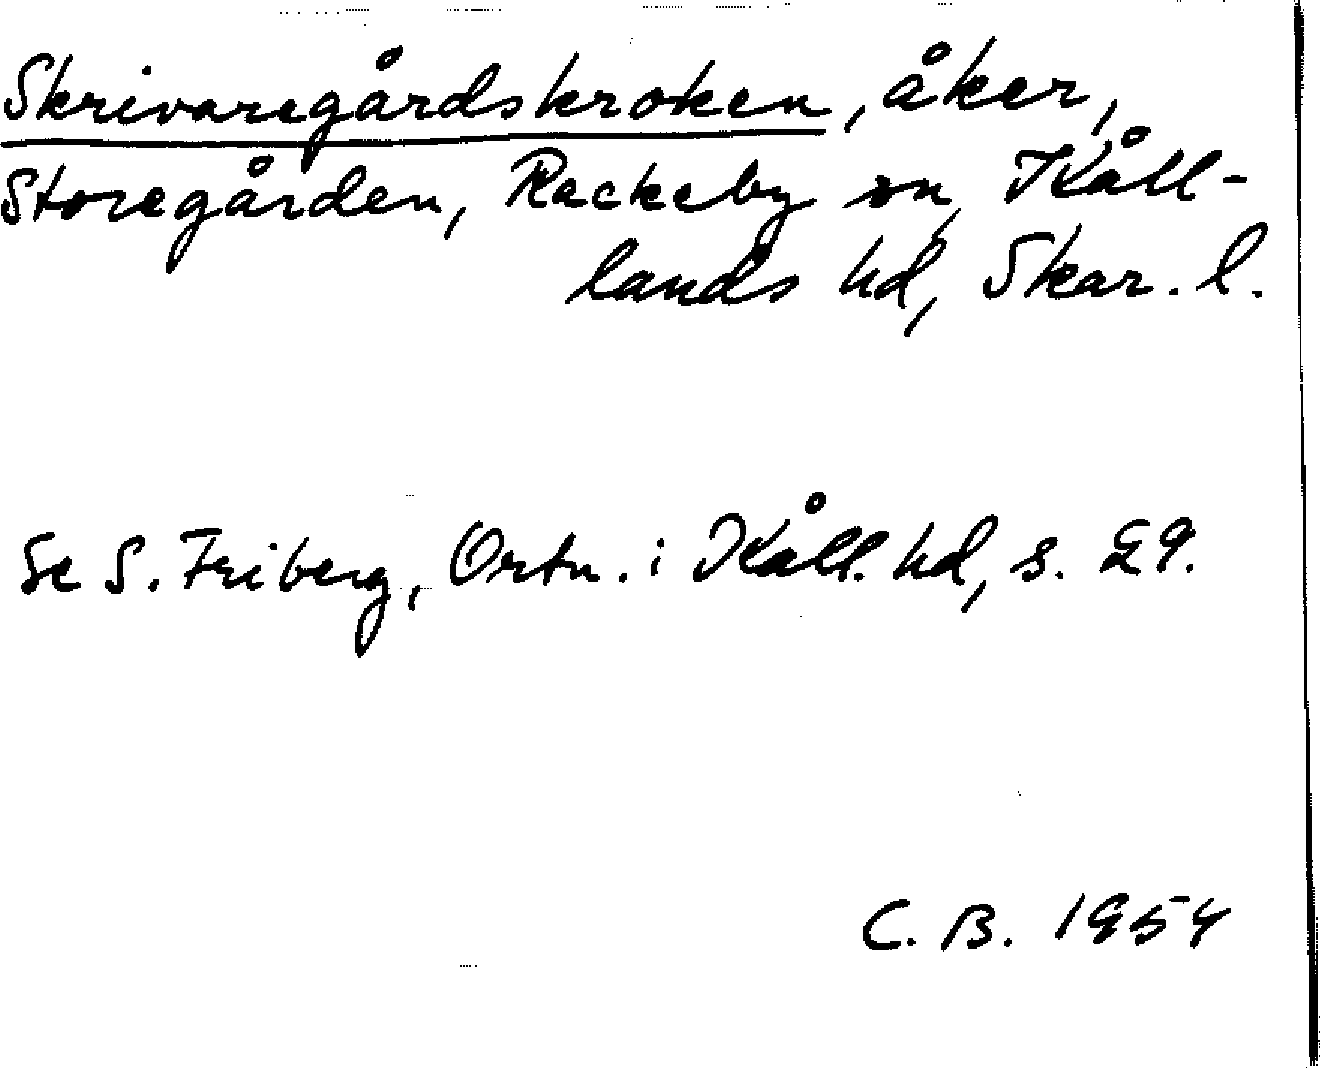 Skrivaregårdskroken, åker,
Storegården, Rackeby sn, Kåll-
lands hd, Skar. l.
Se S. Friberg, Ortn. i Kåll. hd, s. 29.
C. B. 1954